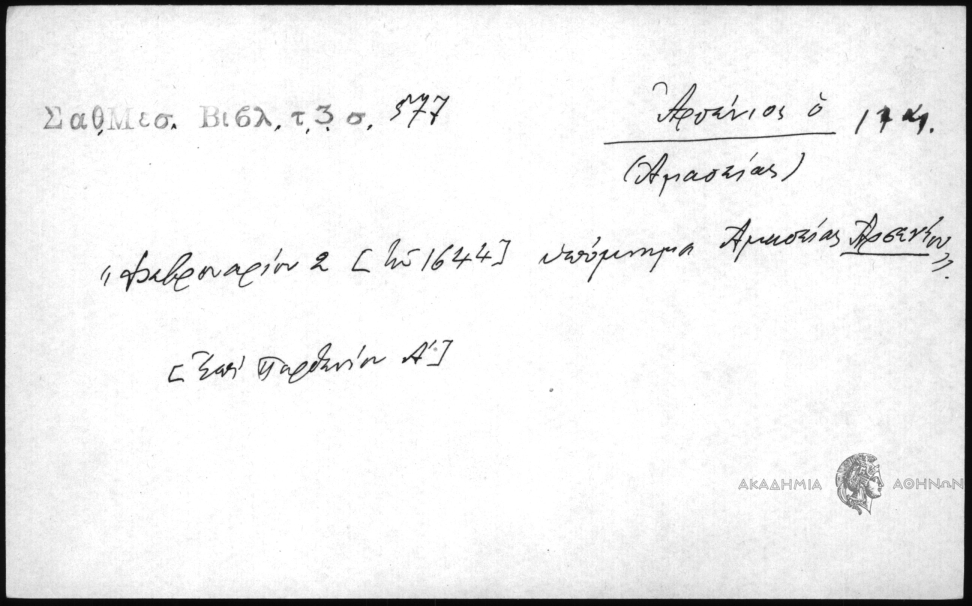 Σαθ. Μεσ. Βιβλ. τ. 3 σ. 577
Ἀρσένιος ὁ
(Ἀμασείας)
"Φεβρουαρίου 2 [τοῦ 1644] ὑπόμνημα Ἀμασείας Ἀρσενίου».
[ἐπὶ Παρθενίου Α΄]
ΑΚΑΔΗΜΙΑ ΑΘΗΝΩΝ